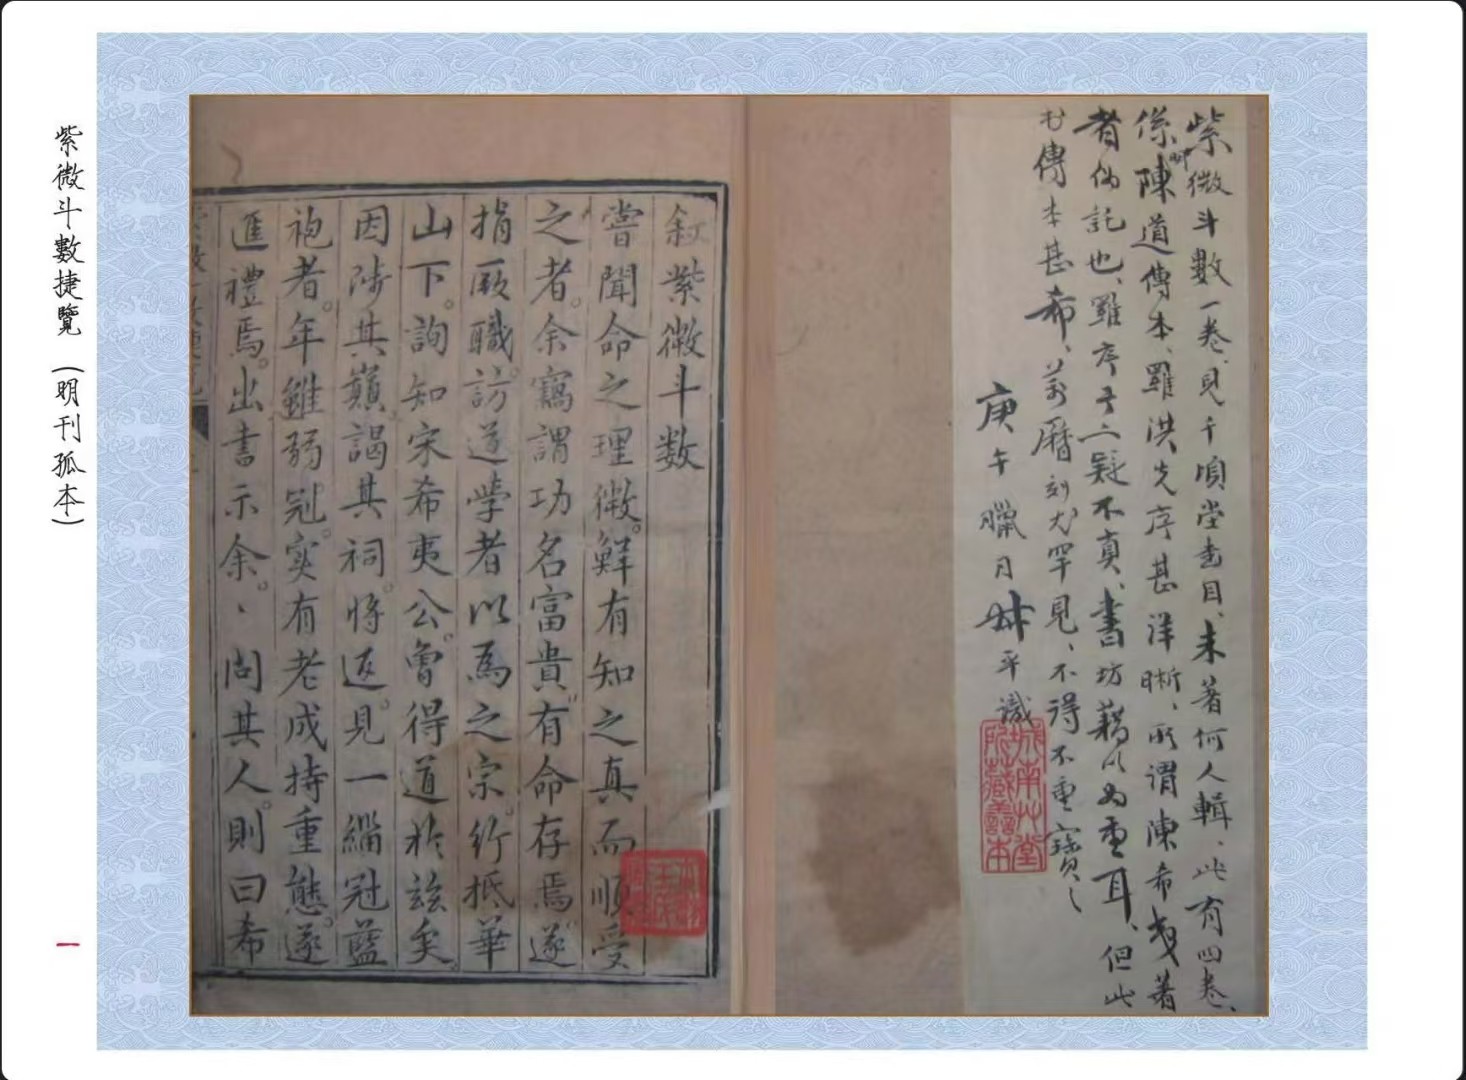 紫微斗數一卷、見千頃堂書目、未著何人輯、此有四卷、
係陳道傳本、羅洪先序甚洋晰、所謂陳希夷著
卿
者偽託也、羅序亦疑不真、書坊藉以為重耳、但此
書傳本甚希、萬曆刻尤罕見、不得不重寶之
庚午臘月 平識
城南草堂
所藏善本
叙紫微斗数
嘗聞命之理微。鮮有知之真而順受
之者。余竊謂功名富貴。有命存焉。遂
捐厥職。訪道學者以為之宗。行抵華
山下。詢知宋希夷公。曾得道於兹矣。
因陟其巔。謁其祠。將返。見一緇冠藍
袍者。年雖弱冠。实有老成持重態。遂
進禮焉。出書示余。、问其人。則曰希
紫微斗數捷覽（明刊孤本）
一